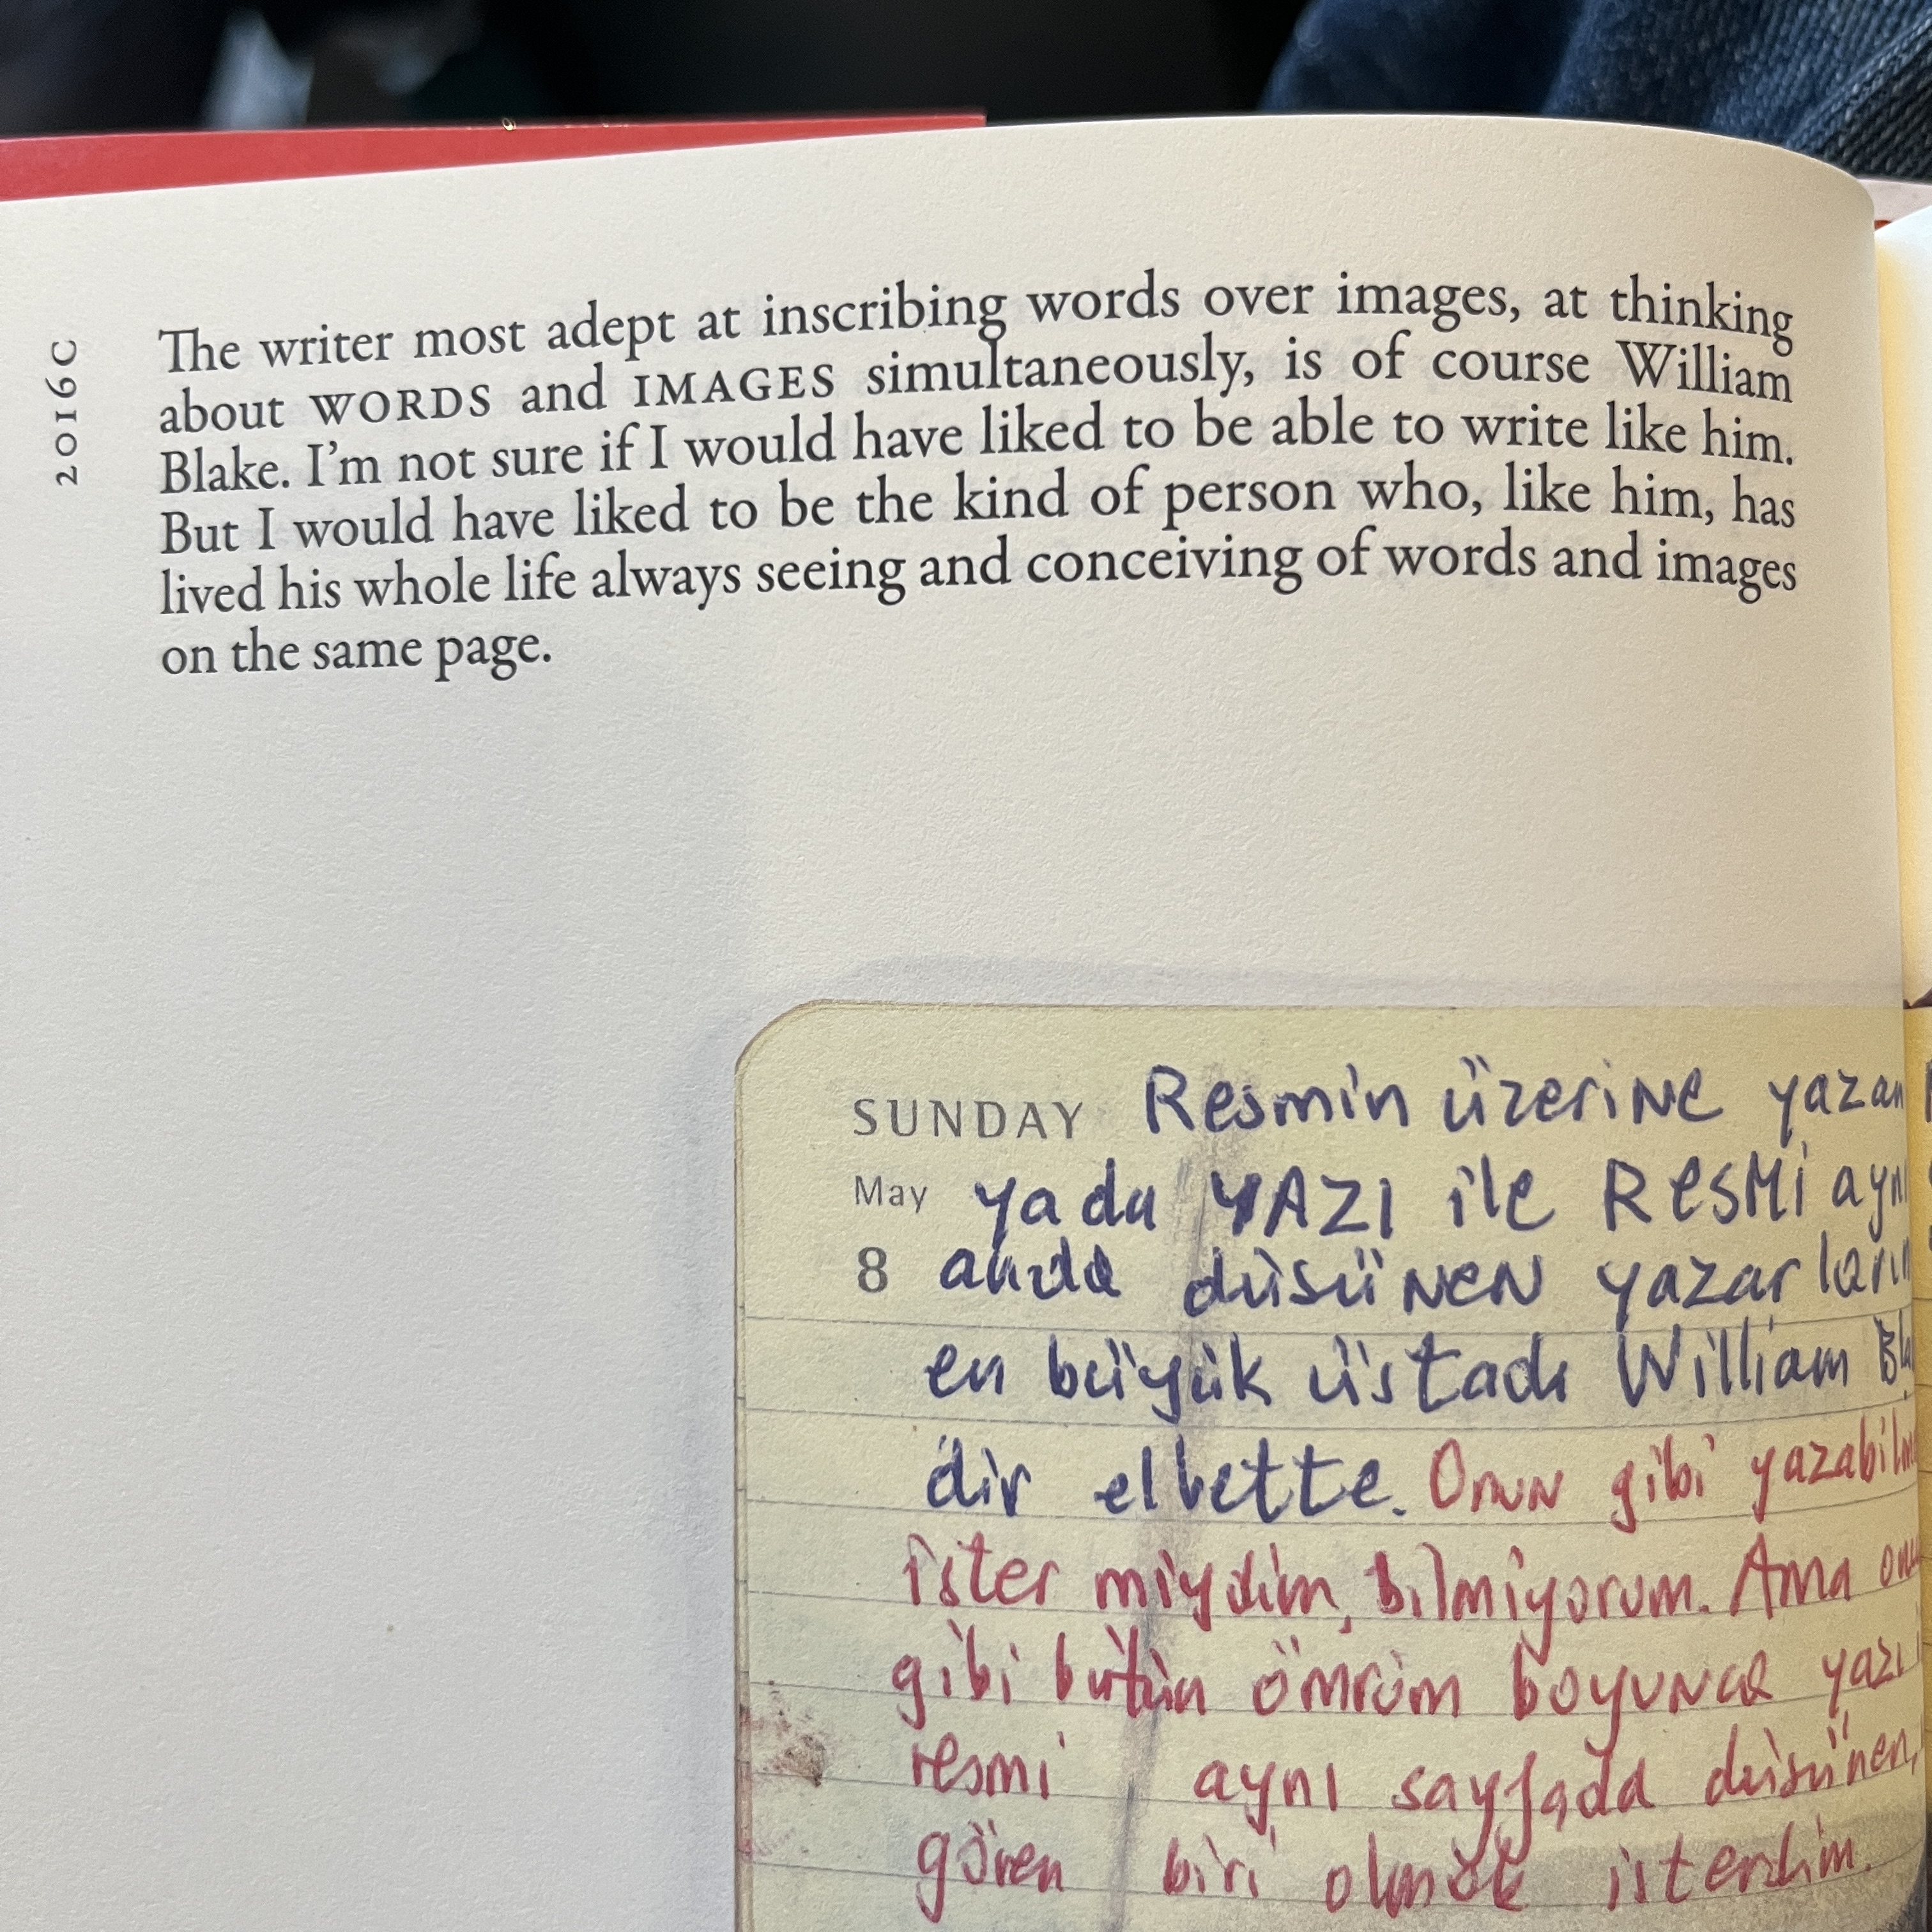 2016C
The writer most adept at inscribing words over images, at thinking
about WORDS and IMAGES simultaneously, is of course William
Blake. I'm not sure if I would have liked to be able to write like him.
But I would have liked to be the kind of person who, like him, has
lived his whole life always seeing and conceiving of words and images
on the same page.
SUNDAY Resmin üzerine yazan
May yada YAZI ile ResMi aynı
8 anda düsünen yazarların
en büyük üstadı William
dir elbette. Onun gibi
ister miydim, bilmiyorum. Ama
gibi bütün ömrüm boyunca
resmi aynı sayfada düsünen,
gören biri olmak isterdim.